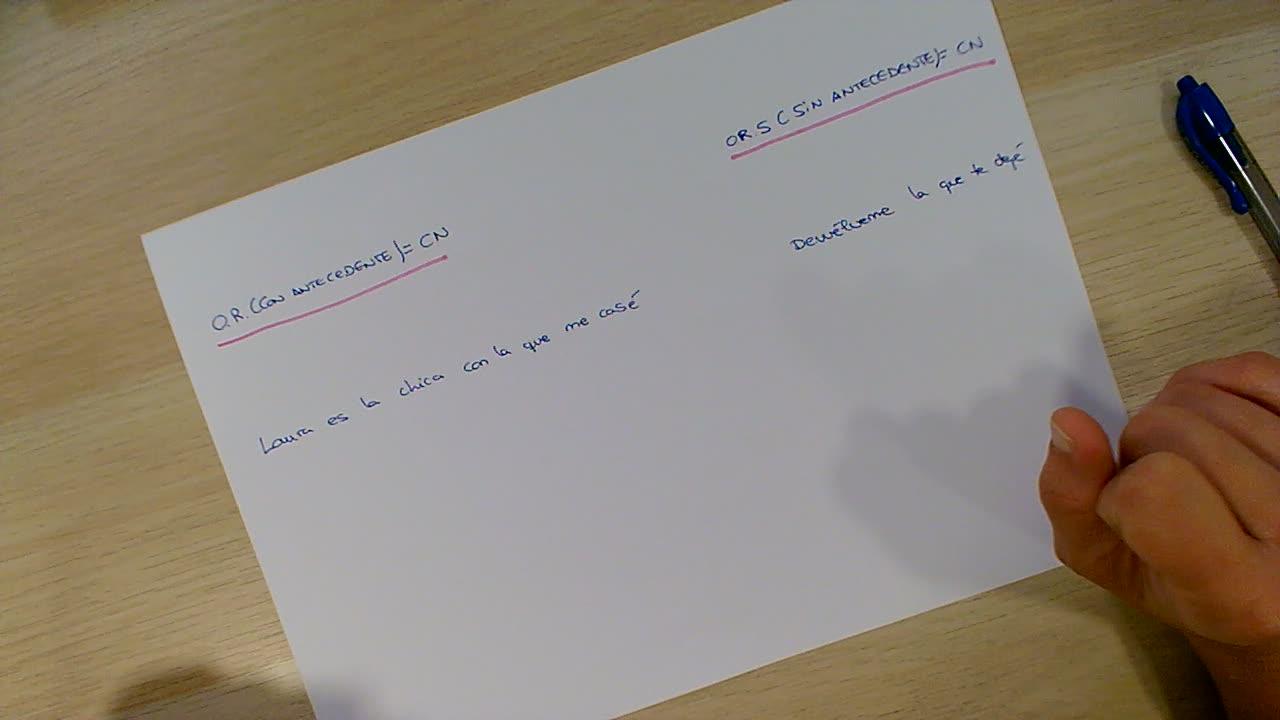 O.R. (CON ANTECEDENTE) = CN
Laura es la chica con la que me casé
OR.S (SiN ANTECEDENTE) = CN
Devuélveme la que te dejé